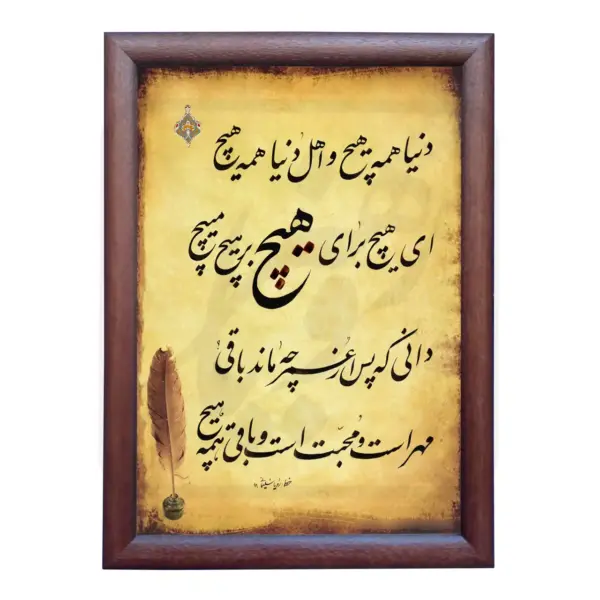 دنیا همه هیچ و اهل دنیا همه هیچ
ای هیچ برای هیچ بر هیچ مپیچ
دانی که پس از عمر چه ماند باقی
مهر است و محبت است و باقی همه هیچ